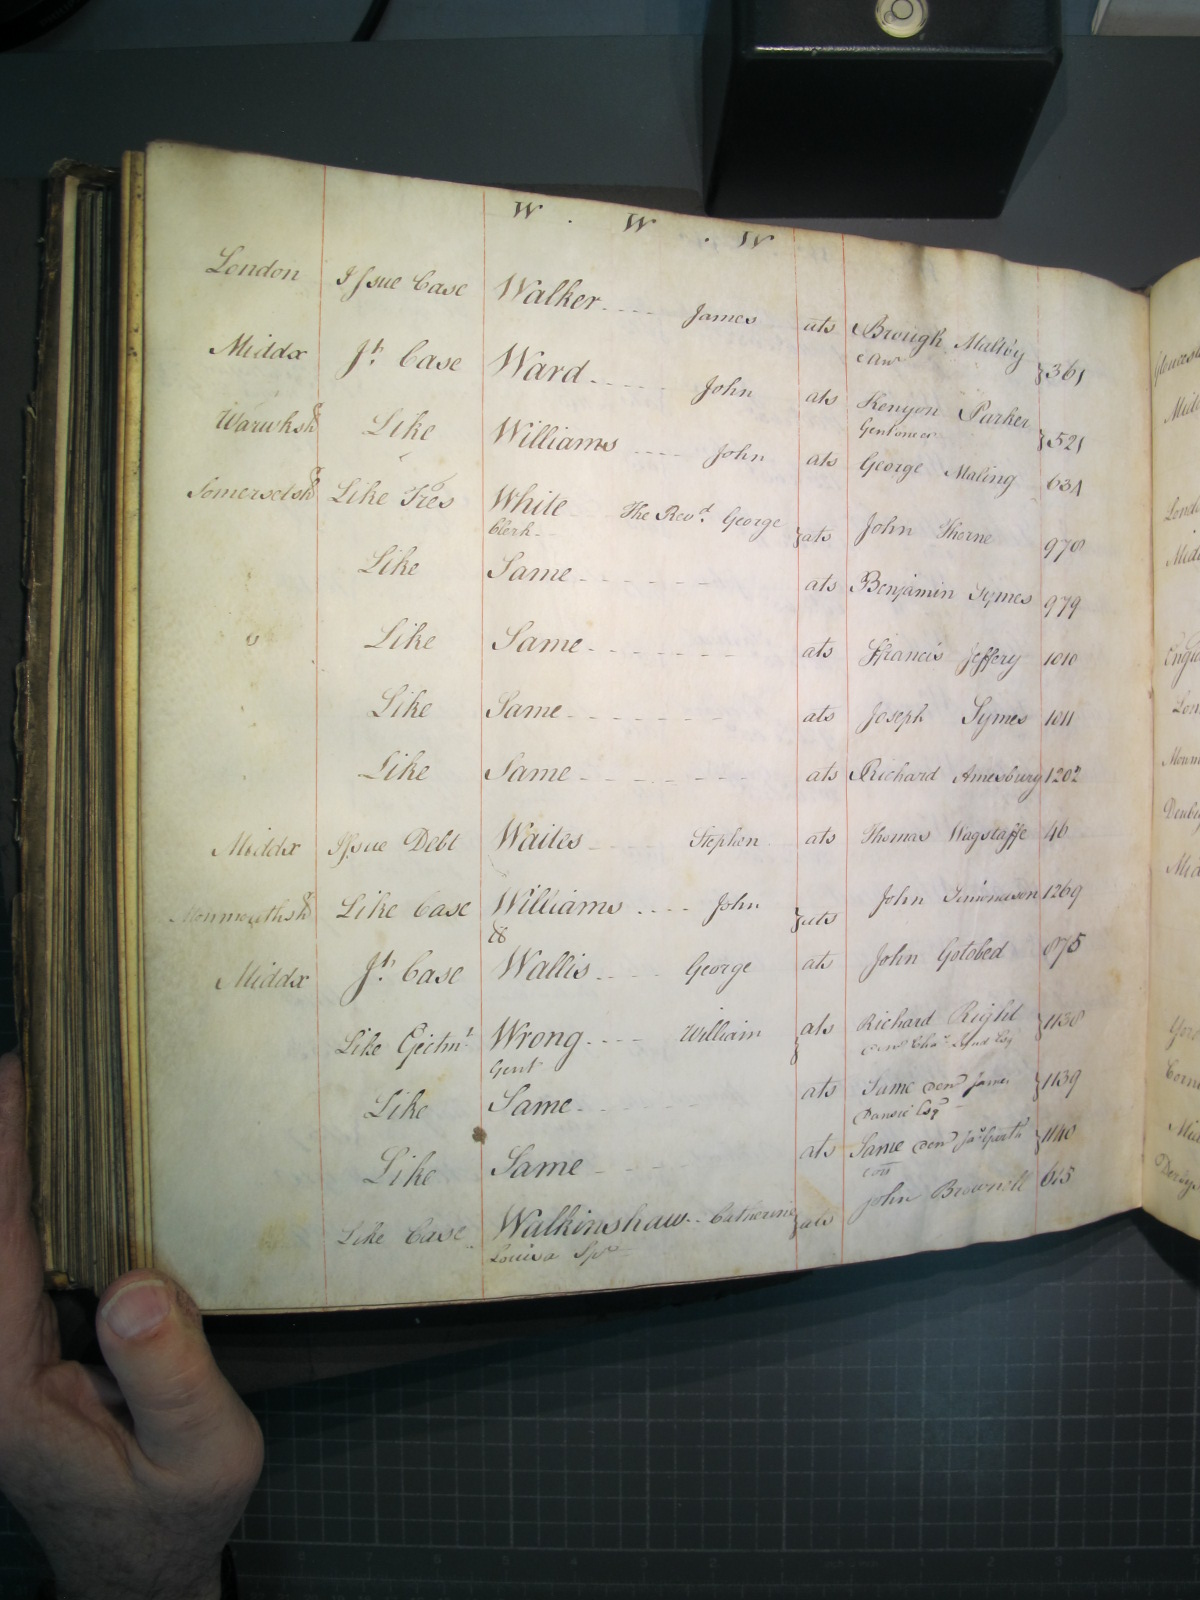 W . W . W
London Issue Case Walker James ats Brough Maltby 361
Middx Jt. Case Ward John ats Kenyon Parker 521
Gentn one &c
Warwksh Like Williams John ats George Maling 631
Somersetsh Like Tres White The Revd. George ats John Thorne 978
Clerk
Like Same ats Benjamin Symes 979
Like Same ats Francis Jeffery 1010
Like Same ats Joseph Symes 1011
Like Same ats Richard Amesbury 1202
Middx Issue Debt Waites Stephen ats Thomas Wagstaffe 46
Monmouthsh Like Case Williams John ats John 1269
Middx Jt. Case Wallis George ats John Gotobed 875
Like Ejectmt Wrong William ats Richard Right 1138
Gent
Like Same ats Same dem James 1139
Dansie Esqr
Like Same ats Same dem 1140
Like Case Walkinshaw Catherine ats John Brownell 615
Louisa Spr